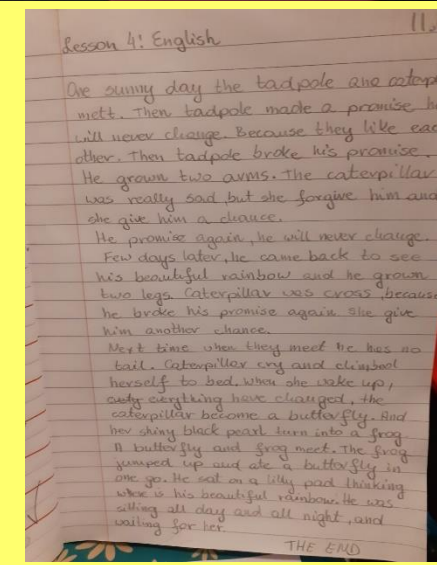 11.
Lesson 4: English
One sunny day the tadpole and caterp
mett. Then tadpole made a promise h
will never change. Because they like eac
other. Then tadpole broke his promise.
He grown two arms. The caterpillar
was really sad but she forgive him and
she give him a chance.
He promise again, he will never change.
Few days later, he came back to see
his beautiful rainbow and he grown
two legs. Caterpillar was cross, because
he broke his promise again. She give
him another chance.
Next time when they meet he has no
tail. Caterpillar cry and climbed
herself to bed. When she wake up,
everything have changed, the
caterpillar become a butterfly. And
her shiny black pearl turn into a frog
A butterfly and frog meet. The frog
jumped up and ate a butterfly in
one go. He sat on a lilly pad thinking
where is his beautiful rainbow. He was
sitting all day and all night, and
waiting for her.
THE END